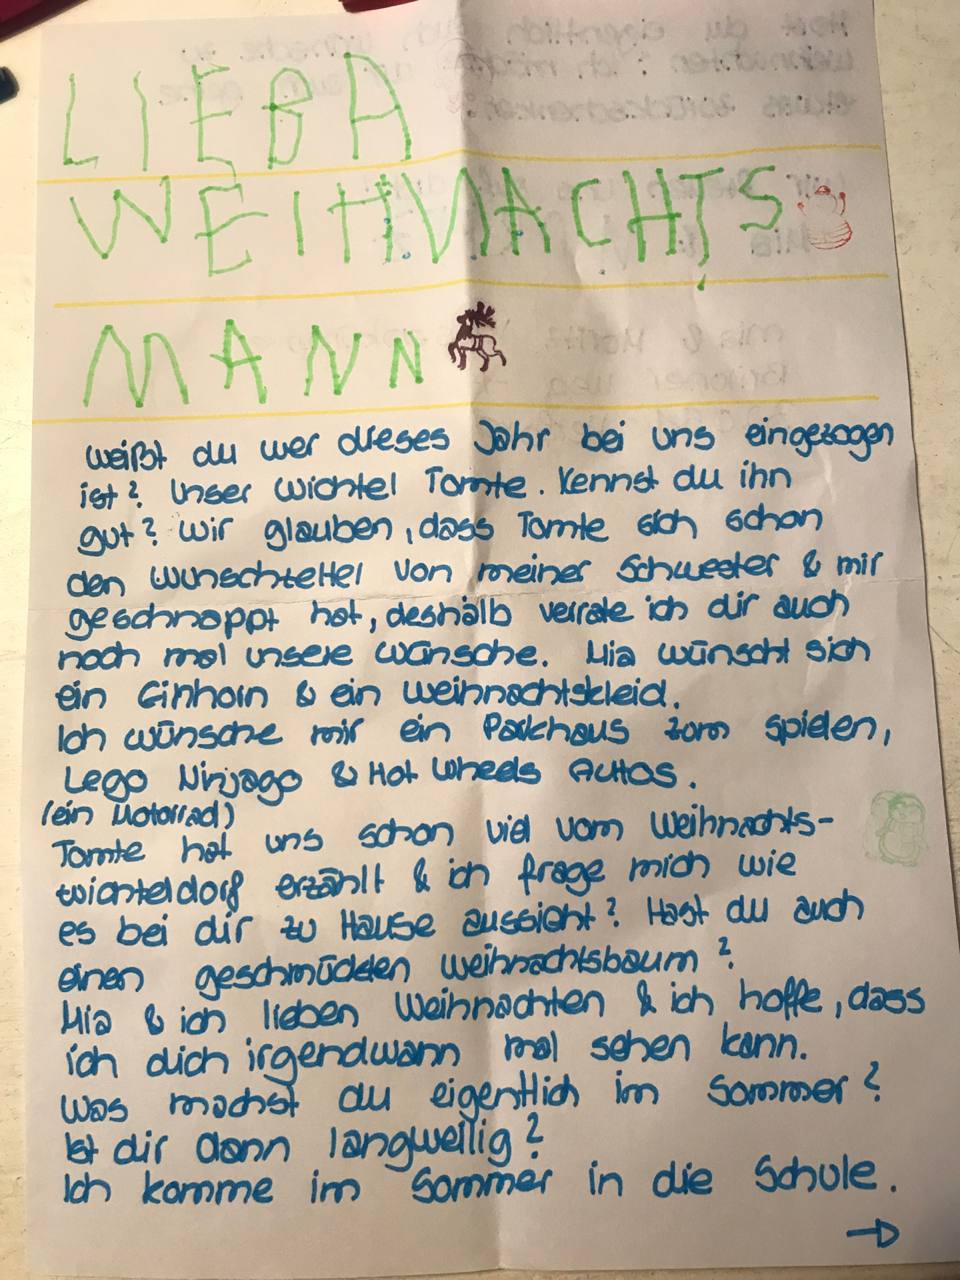 LIEBA
WEIHNACHTS
MANN
weißt du wer dieses Jahr bei uns eingezogen
ist? Unser Wichtel Tomte. Kennst du ihn
gut? Wir glauben, dass Tomte sich schon
den Wunschzettel von meiner Schwester & mir
geschnappt hat, deshalb verrate ich dir auch
noch mal unsere Wünsche. Mia wünscht sich
ein Einhorn & ein Weihnachtskleid.
Ich wünsche mir ein Parkhaus zum spielen,
Lego Ninjago & Hot Wheels Autos.
(ein Motorrad)
Tomte hat uns schon viel vom Weihnachts-
wichteldorf erzählt & ich frage mich wie
es bei dir zu Hause aussieht? Hast du auch
einen geschmückten Weihnachtsbaum?
Mia & ich lieben Weihnachten & ich hoffe, dass
ich dich irgendwann mal sehen kann.
Was machst du eigentlich im Sommer?
Ist dir dann langweilig?
Ich komme im Sommer in die Schule.
→